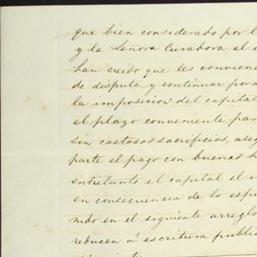 que bien considerado por l
y la Señora Curadora el a
han creido que les convienen
de disputa y continuar por a
la imposicion del capital
el plazo conveniente para
sin costosos sacrificios, aseg
parte el pago con buenas h
entretanto el capital el i
en consecuencia de lo espu
nido en el siguiente arreglo
reducen á escritura public